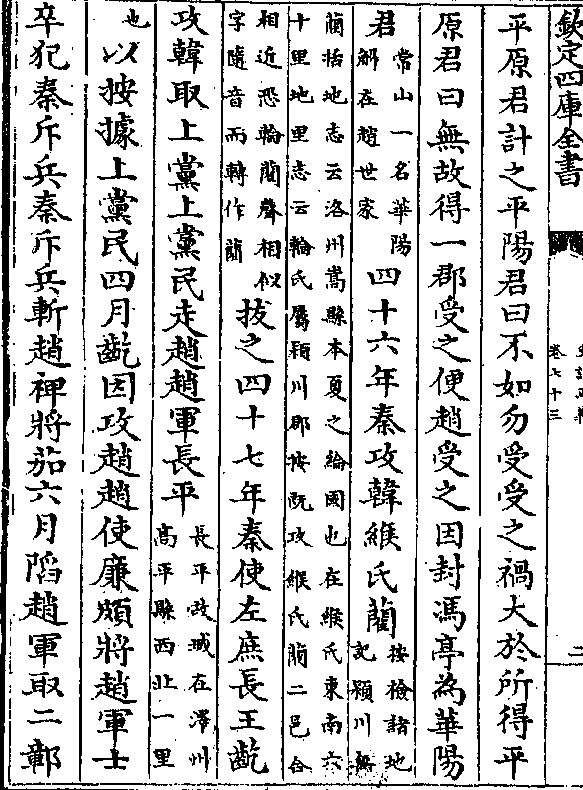 欽定四庫全書
卷七十三
二
平原君計之平陽君曰不如勿受受之禍大於所得平
原君曰無故得一郡受之便趙受之因封馮亭為華陽
君
常山一名華陽
解在趙世家
四十六年秦攻韓緱氏藺
按檢諸地
記潁川無
藺括地志云洛州嵩縣本夏之綸國也在緱氏東南六
十里地里志云輪氏屬潁川郡按既攻緱氏藺二邑合
相近恐輪藺聲相似
字隨音而轉作藺
拔之四十七年秦使左庶長王齕
攻韓取上黨上黨民走趙趙軍長平
長平故城在澤州
高平縣西北一里
也
以按據上黨民四月齕因攻趙趙使廉頗將趙軍士
卒犯秦斥兵秦斥兵斬趙裨將茄六月陷趙軍取二鄣